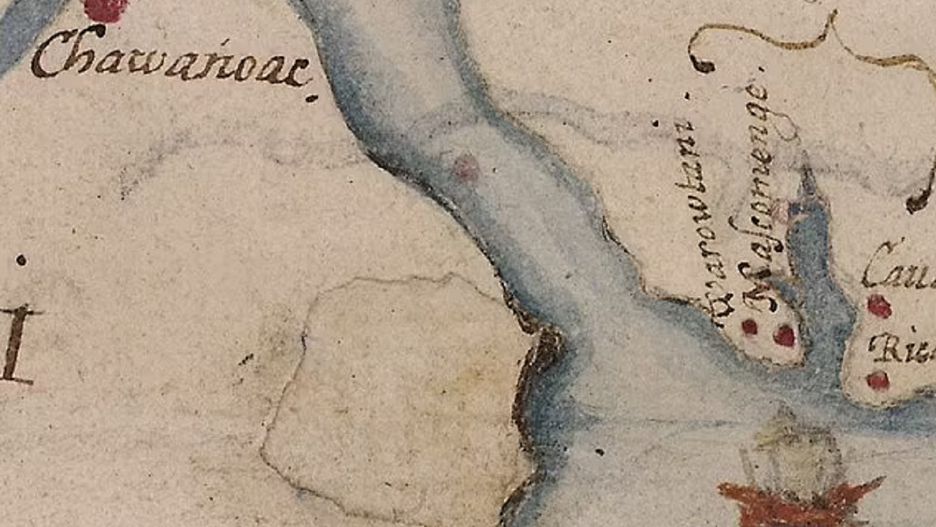 Chawanoac.
Warowtani.
Mascomenge.
I